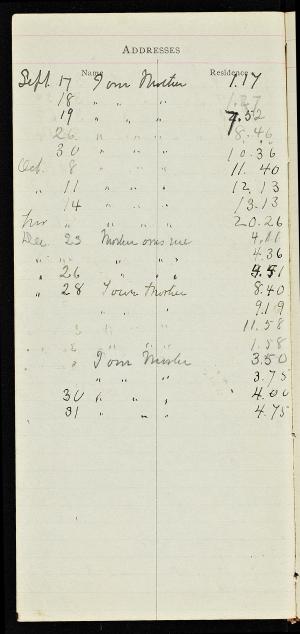 ADDRESSES
Name Residence
Sept. 17 I owe Mother 1.17
18 " " " 1.27
19 " " " 7.52
26 " " " 8.46
30 " " " 10.36
Oct. 8 " " " 11.40
" 11 " " " 12.13
" 14 " " " 13.13
" " " " 20.26
Dec. 23 Mother owes me 4.11
" " " " " 4.36
" 26 " " " 4.51
" 28 I owe Mother 8.40
" " " 9.19
" " " 11.58
" " " 1.58
" I owe Mother 3.50
" " " 3.75
30 " " " 4.00
31 " " " 4.75